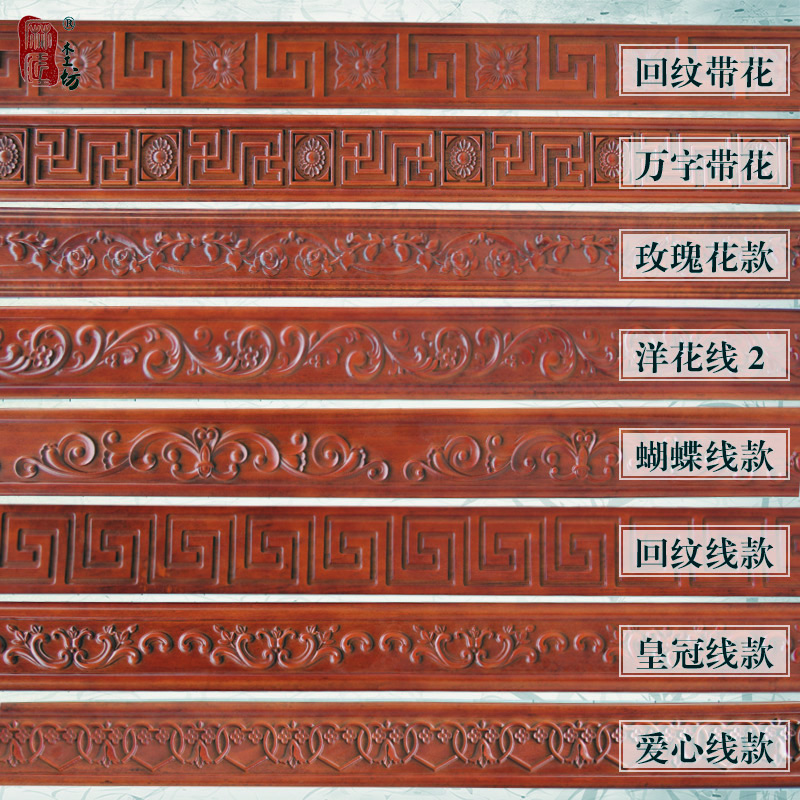 ®
木工坊
回纹带花
万字带花
玫瑰花款
洋花线2
蝴蝶线款
回纹线款
皇冠线款
爱心线款